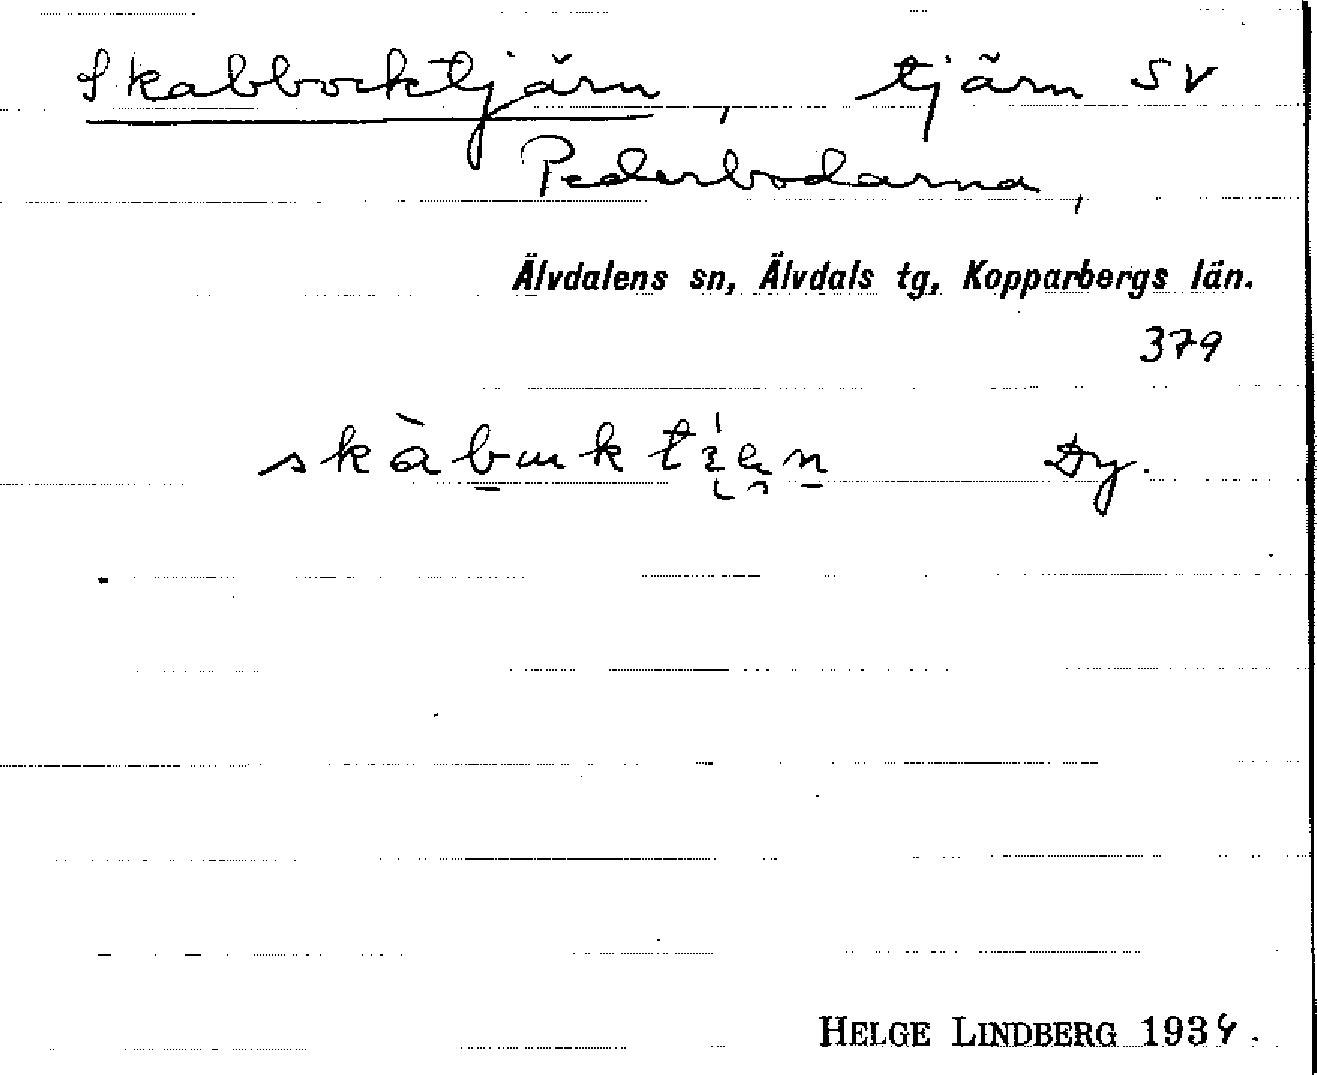 Skabbocktjärn, tjärn SV
Pederbodarna,
Älvdalens sn, Älvdals tg, Kopparbergs län.
379
Dy.
HELGE LINDBERG 1934.